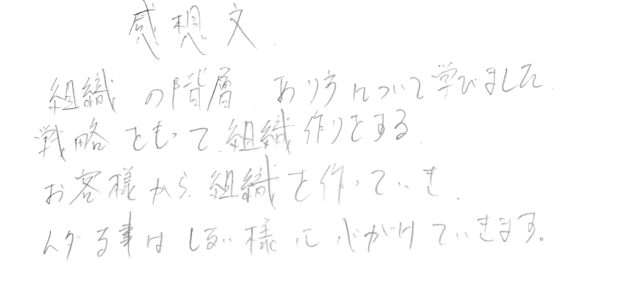 感想文
組織の階層、あり方について学びました
戦略をもって組織作りをする
お客様から組織を作っていき
る事はしない様に心がけていきます。